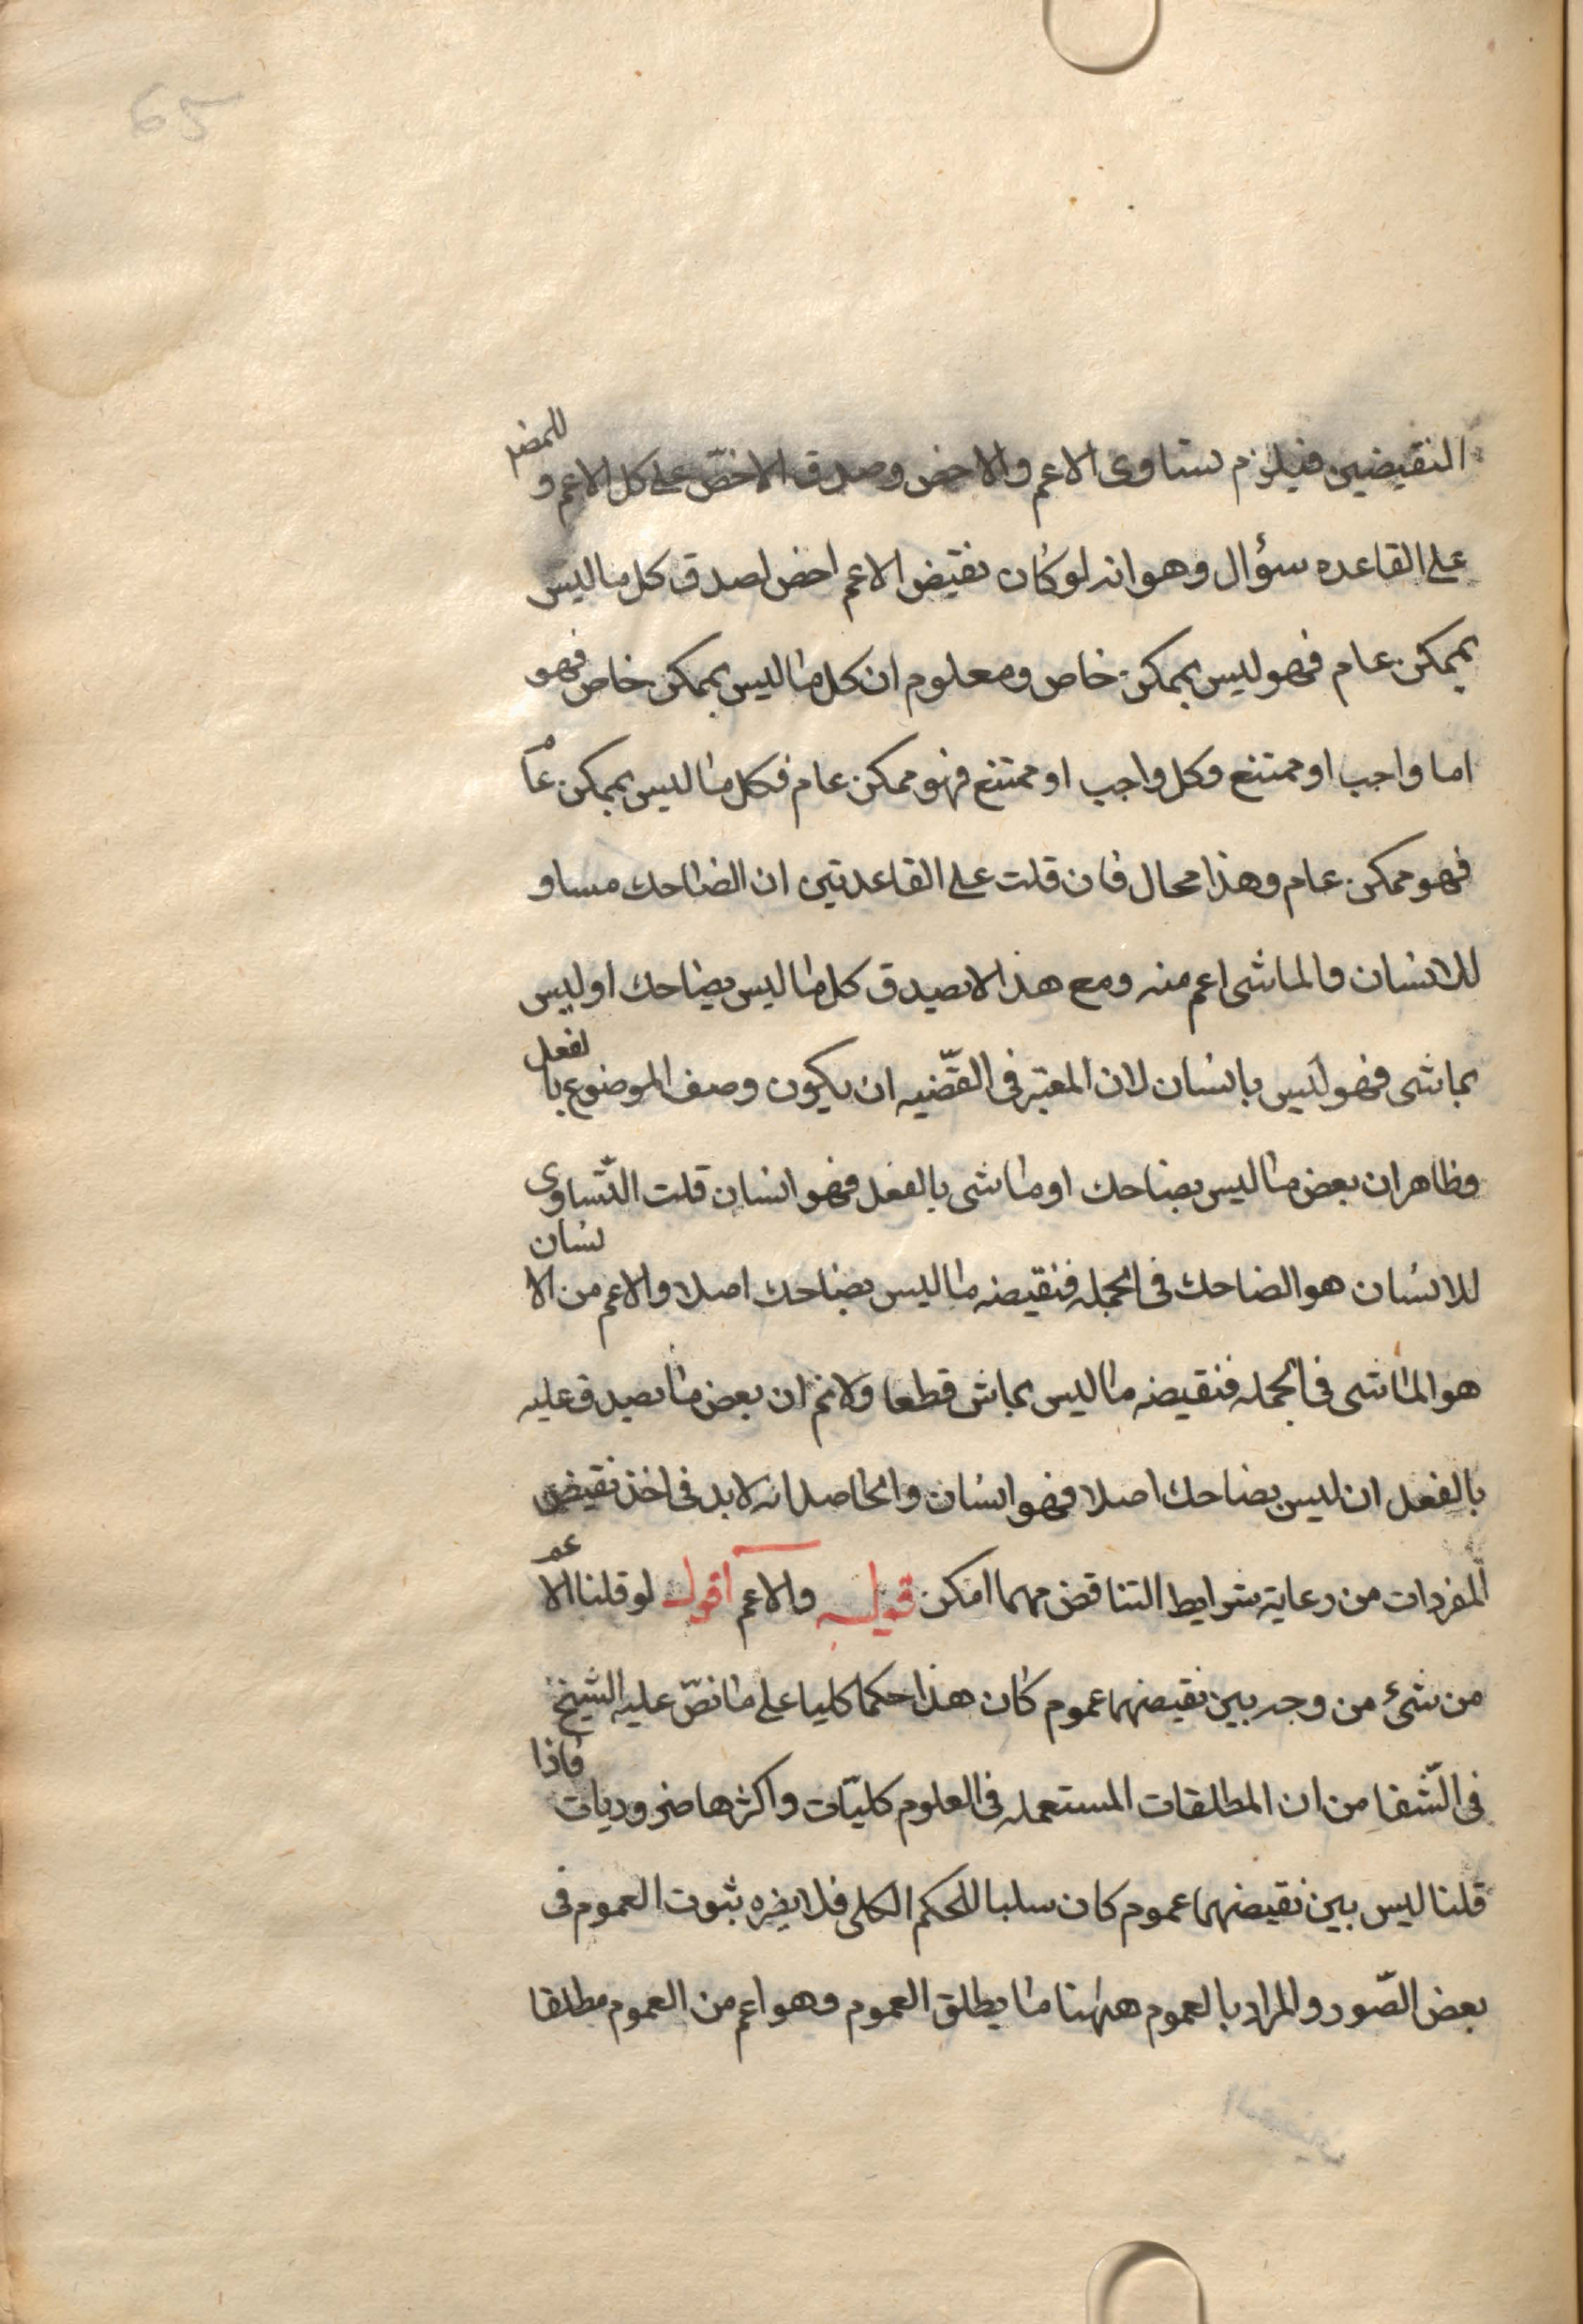 65
النقيضين فيلزم تساوى الاعم والاخص وصدق الاخصّ على كل الاعم و للمصر
على القاعده سؤال وهو انه لو كان نقيض الاعم اخص لصدق كل ما ليس
بممكن عام فهو ليس بممكن خاص ومعلوم ان كل ما ليس بممكن خاص فهو
اما واجب او ممتنع وكل واجب او ممتنع فهو ممكن عام فكل ما ليس بممكن عام
فهو ممكن عام وهذا محال فان قلت على القاعدتين ان الضاحك مساو
للانسان والماشى اعم منه ومع هذا لا يصدق كل ما ليس بضاحك او ليس
بماشى فهو ليس بانسان لان المعتبر فى القضّيه ان يكون وصف الموضوع بالفعل
وظاهر ان بعض ما ليس بضاحك او ماشى بالفعل فهو انسان قلت التّساوى
للانسان هو الضاحك فى الجمله فنقيضه ما ليس بضاحك اصلا والاعم من الانسان
هو الماشى فى الجمله فنقيضه ما ليس بماش قطعا ولانم ان بعض ما يصدق عليه
بالفعل ان ليس بضاحك اصلا فهو انسان والحاصل انه لابد فى اخذ نقيض
المفردات من رعاية شرايط التناقض مهما امكن قوله والاعم اقول لو قلنا الاعم
من شئ من وجه بين نقيضهما عموم كان هذا حكما كليا على ما نصّ عليه الشيخ
فى الشّفا من ان المطلقات المستعمله فى العلوم كليّات واكثرها ضروريات فاذا
قلنا ليس بين نقيضهما عموم كان سلبا للحكم الكلى فلا يضره ثبوت العموم فى
بعض الصّور والمراد بالعموم ههنا ما يطلق العموم وهو اعم من العموم مطلقا